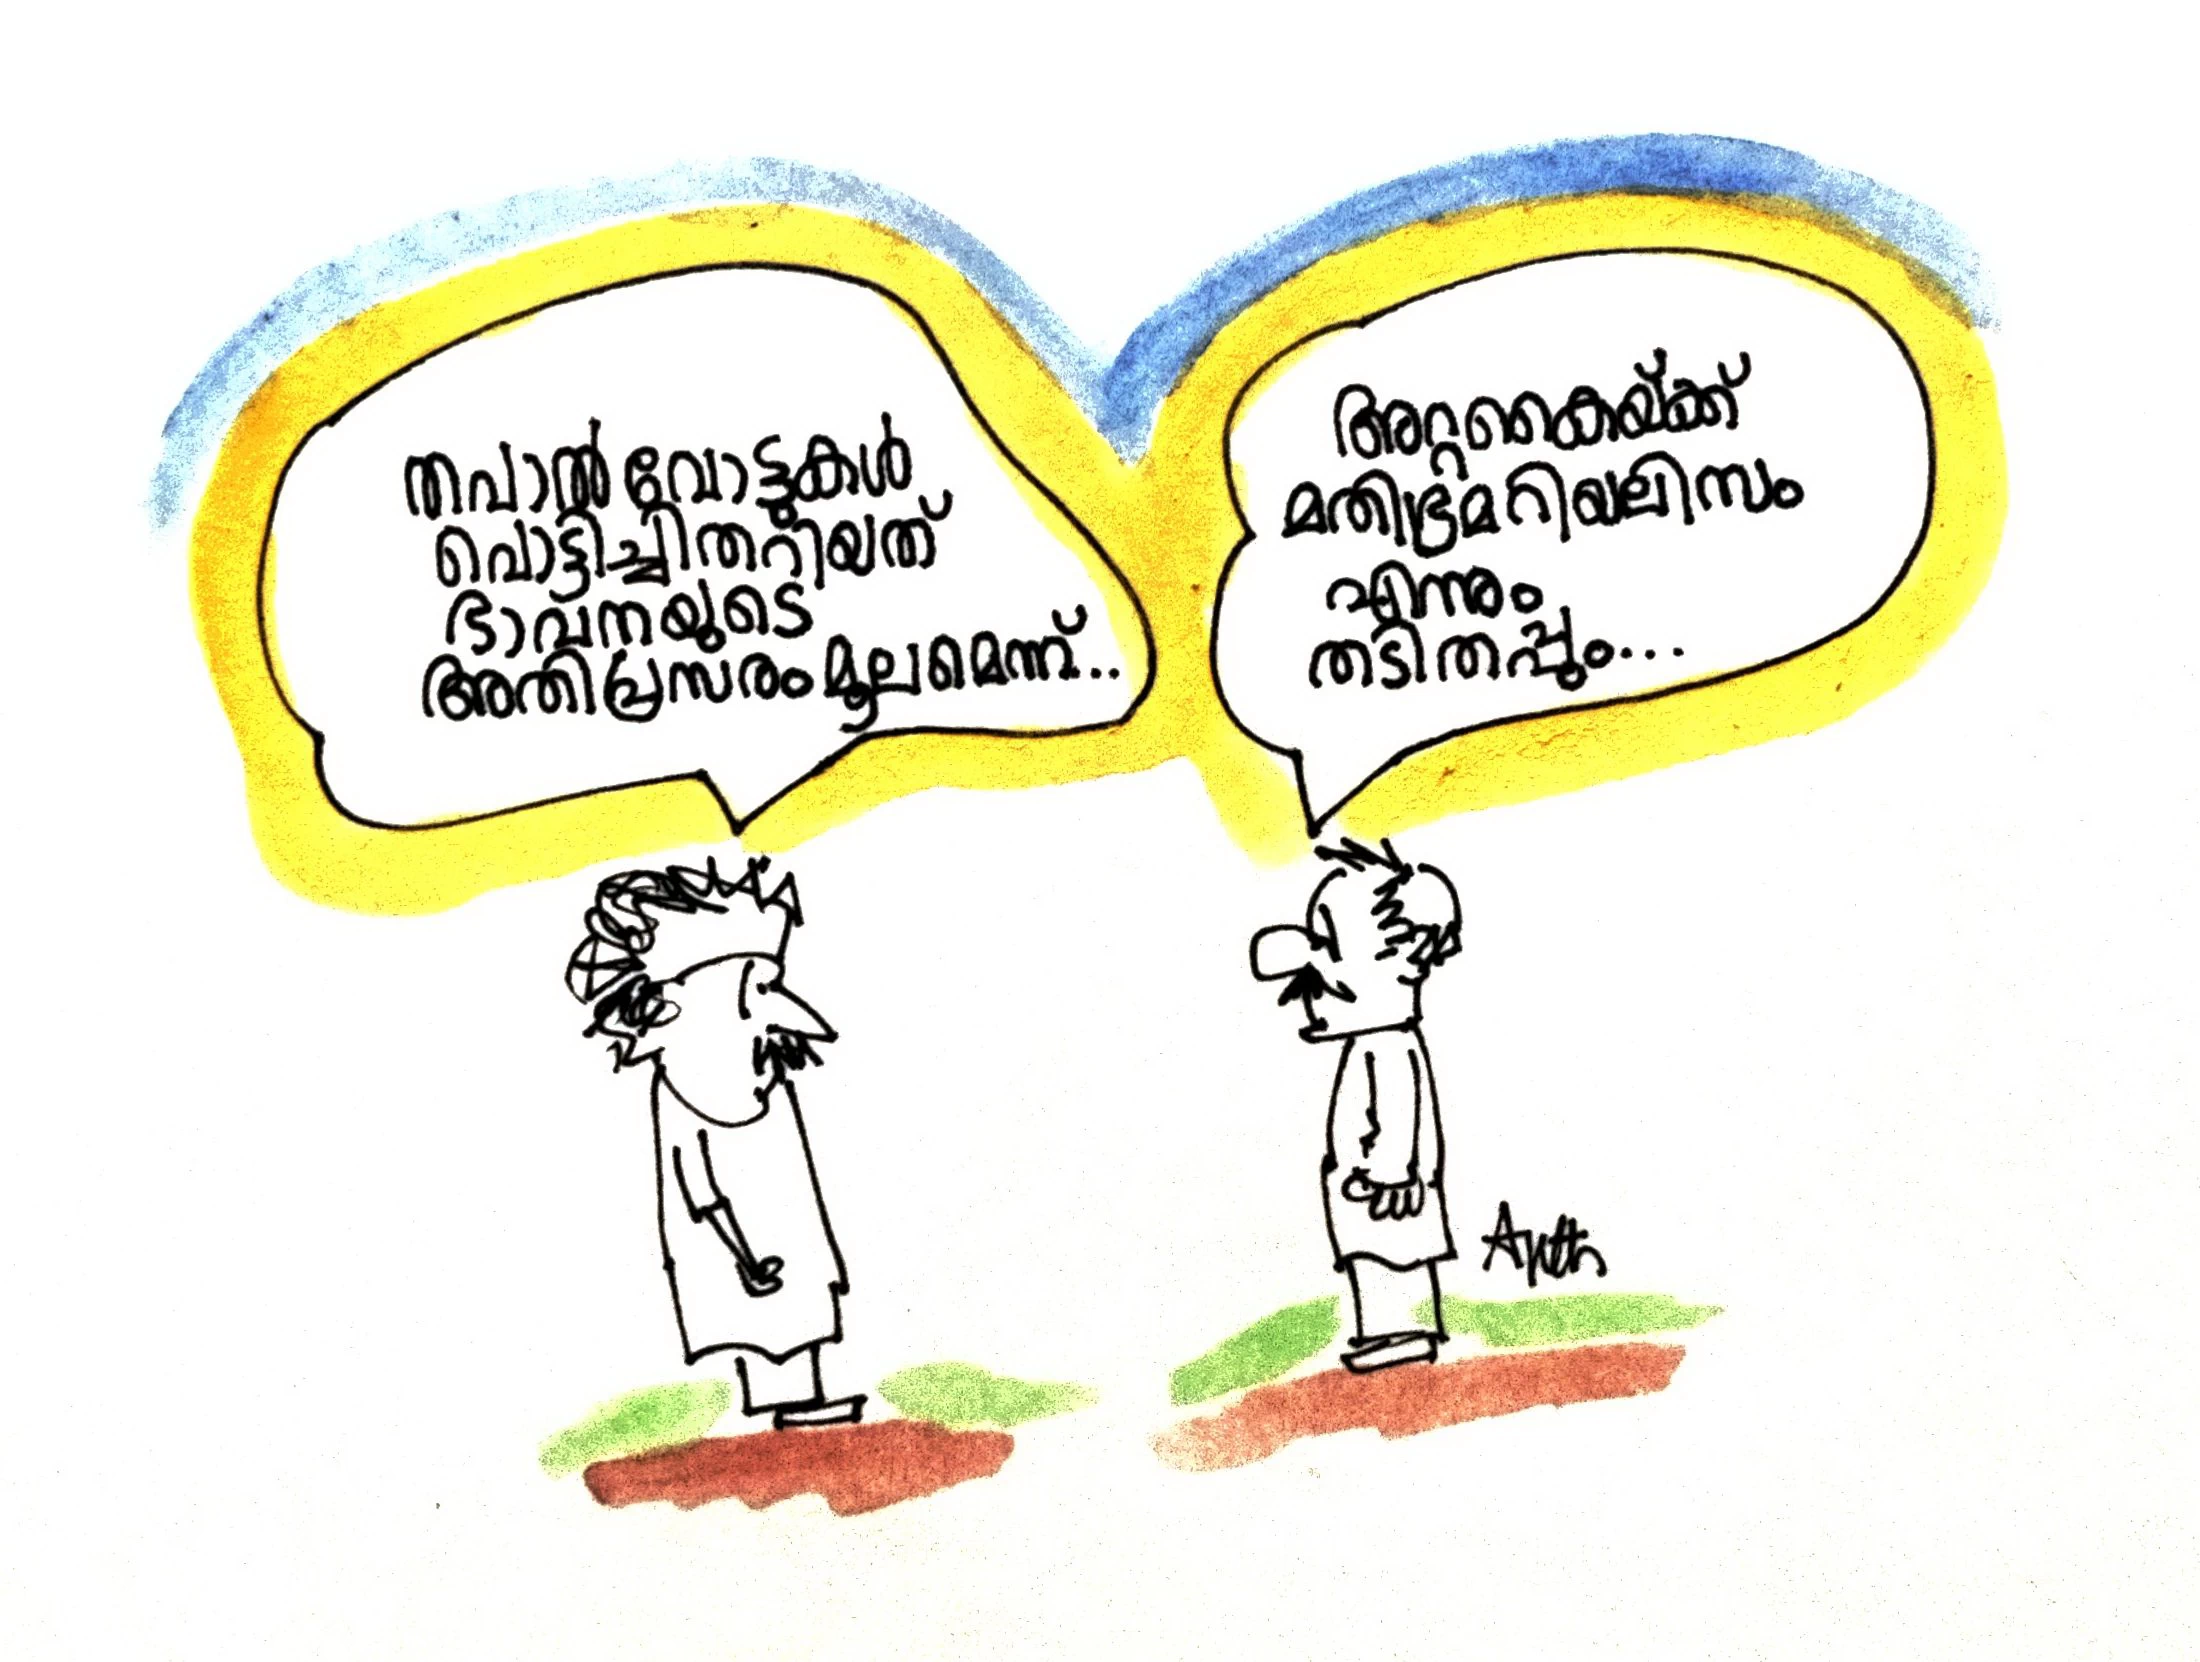 തപാൽ വോട്ടുകൾ
പൊട്ടിച്ചിതറിയത്
ഭാവനയുടെ
അതിപ്രസരം മൂലമെന്ന്..
അറ്റകൈയ്ക്ക്
മതിഭ്രമറിയലിസം
എന്നും
തടിതപ്പും...